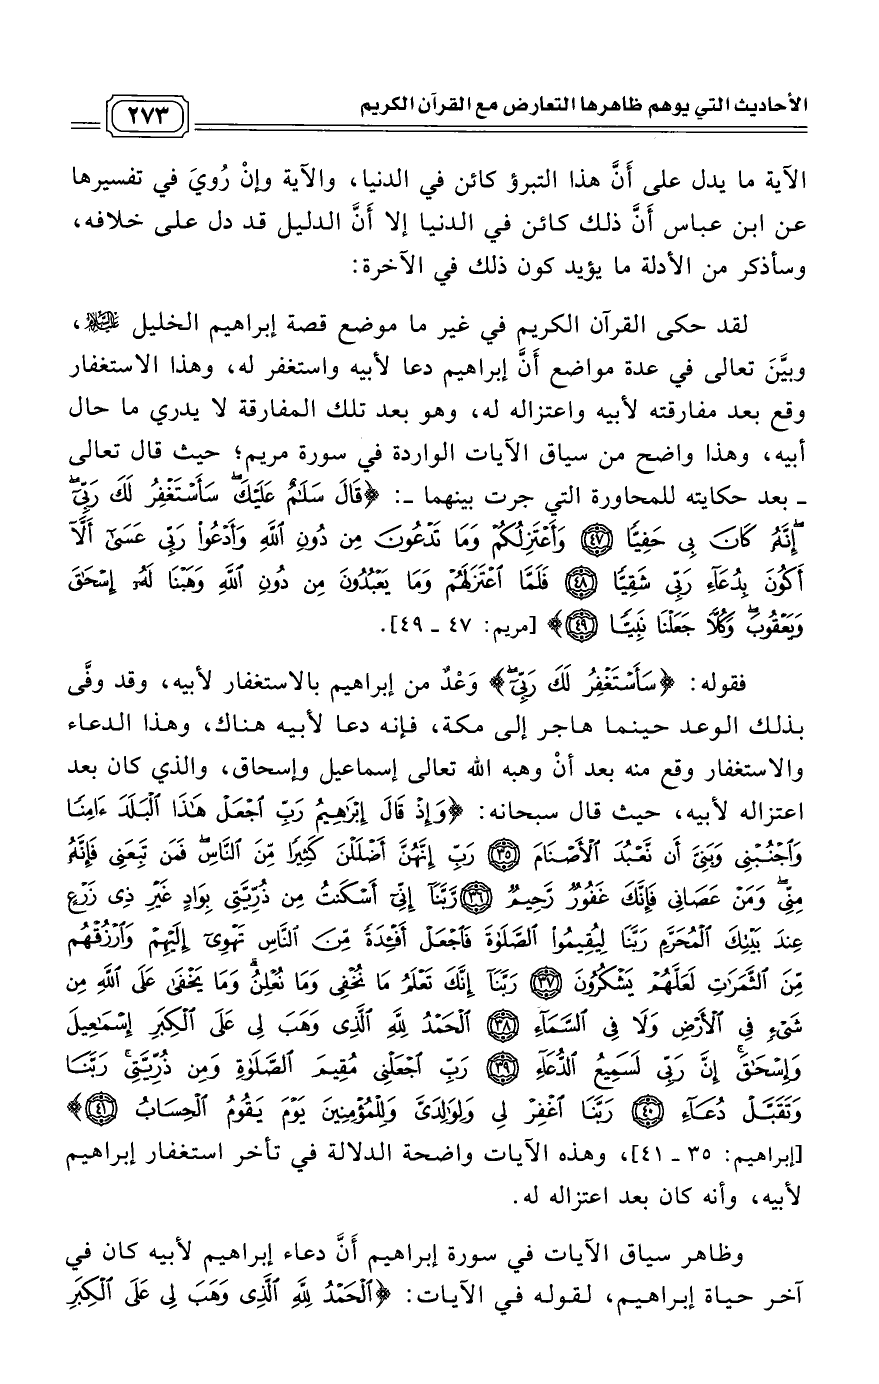 الأحاديث التي يوهم ظاهرها التعارض مع القرآن الكريم
٢٧٣
الآية ما يدل على أَنَّ هذا التبرؤ كائن في الدنيا، والآية وإنْ رُويَ في تفسيرها
عن ابن عباس أَنَّ ذلك كائن في الدنيا إلا أَنَّ الدليل قد دل على خلافه،
وسأذكر من الأدلة ما يؤيد كون ذلك في الآخرة:
لقد حكى القرآن الكريم في غير ما موضع قصة إبراهيم الخليل عليه السلام،
وبيَّنَ تعالى في عدة مواضع أَنَّ إبراهيم دعا لأبيه واستغفر له، وهذا الاستغفار
وقع بعد مفارقته لأبيه واعتزاله له، وهو بعد تلك المفارقة لا يدري ما حال
أبيه، وهذا واضح من سياق الآيات الواردة في سورة مريم؛ حيث قال تعالى
ـ بعد حكايته للمحاورة التي جرت بينهما ـ: ﴿قَالَ سَلَٰمٌ عَلَيْكَۖ سَأَسْتَغْفِرُ لَكَ رَبِّيٓۖ
إِنَّهُۥ كَانَ بِى حَفِيًّا ﴿٤٧﴾ وَأَعْتَزِلُكُمْ وَمَا تَدْعُونَ مِن دُونِ ٱللَّهِ وَأَدْعُوا۟ رَبِّى عَسَىٰٓ أَلَّآ
أَكُونَ بِدُعَآءِ رَبِّى شَقِيًّا ﴿٤٨﴾ فَلَمَّا ٱعْتَزَلَهُمْ وَمَا يَعْبُدُونَ مِن دُونِ ٱللَّهِ وَهَبْنَا لَهُۥٓ إِسْحَٰقَ
وَيَعْقُوبَۖ وَكُلًّا جَعَلْنَا نَبِيًّا ﴿٤٩﴾﴾ [مريم: ٤٧ ـ ٤٩].
فقوله: ﴿سَأَسْتَغْفِرُ لَكَ رَبِّيٓۖ﴾ وَعْدٌ من إبراهيم بالاستغفار لأبيه، وقد وفَّى
بذلك الوعد حينما هاجر إلى مكة، فإنه دعا لأبيه هناك، وهذا الدعاء
والاستغفار وقع منه بعد أنْ وهبه الله تعالى إسماعيل وإسحاق، والذي كان بعد
اعتزاله لأبيه، حيث قال سبحانه: ﴿وَإِذْ قَالَ إِبْرَٰهِيمُ رَبِّ ٱجْعَلْ هَٰذَا ٱلْبَلَدَ ءَامِنًا
وَٱجْنُبْنِى وَبَنِىَّ أَن نَّعْبُدَ ٱلْأَصْنَامَ ﴿٣٥﴾ رَبِّ إِنَّهُنَّ أَضْلَلْنَ كَثِيرًا مِّنَ ٱلنَّاسِۖ فَمَن تَبِعَنِى فَإِنَّهُۥ
مِنِّىۖ وَمَنْ عَصَانِى فَإِنَّكَ غَفُورٌ رَّحِيمٌ ﴿٣٦﴾ رَّبَّنَآ إِنِّىٓ أَسْكَنتُ مِن ذُرِّيَّتِى بِوَادٍ غَيْرِ ذِى زَرْعٍ
عِندَ بَيْتِكَ ٱلْمُحَرَّمِ رَبَّنَا لِيُقِيمُوا۟ ٱلصَّلَوٰةَ فَٱجْعَلْ أَفْـِٔدَةً مِّنَ ٱلنَّاسِ تَهْوِىٓ إِلَيْهِمْ وَٱرْزُقْهُم
مِّنَ ٱلثَّمَرَٰتِ لَعَلَّهُمْ يَشْكُرُونَ ﴿٣٧﴾ رَبَّنَآ إِنَّكَ تَعْلَمُ مَا نُخْفِى وَمَا نُعْلِنُۗ وَمَا يَخْفَىٰ عَلَى ٱللَّهِ مِن
شَىْءٍ فِى ٱلْأَرْضِ وَلَا فِى ٱلسَّمَآءِ ﴿٣٨﴾ ٱلْحَمْدُ لِلَّهِ ٱلَّذِى وَهَبَ لِى عَلَى ٱلْكِبَرِ إِسْمَٰعِيلَ
وَإِسْحَٰقَۚ إِنَّ رَبِّى لَسَمِيعُ ٱلدُّعَآءِ ﴿٣٩﴾ رَبِّ ٱجْعَلْنِى مُقِيمَ ٱلصَّلَوٰةِ وَمِن ذُرِّيَّتِىۚ رَبَّنَا
وَتَقَبَّلْ دُعَآءِ ﴿٤٠﴾ رَبَّنَا ٱغْفِرْ لِى وَلِوَٰلِدَىَّ وَلِلْمُؤْمِنِينَ يَوْمَ يَقُومُ ٱلْحِسَابُ ﴿٤١﴾﴾
[إبراهيم: ٣٥ ـ ٤١]، وهذه الآيات واضحة الدلالة في تأخر استغفار إبراهيم
لأبيه، وأنه كان بعد اعتزاله له.
وظاهر سياق الآيات في سورة إبراهيم أَنَّ دعاء إبراهيم لأبيه كان في
آخر حياة إبراهيم، لقوله في الآيات: ﴿ٱلْحَمْدُ لِلَّهِ ٱلَّذِى وَهَبَ لِى عَلَى ٱلْكِبَرِ